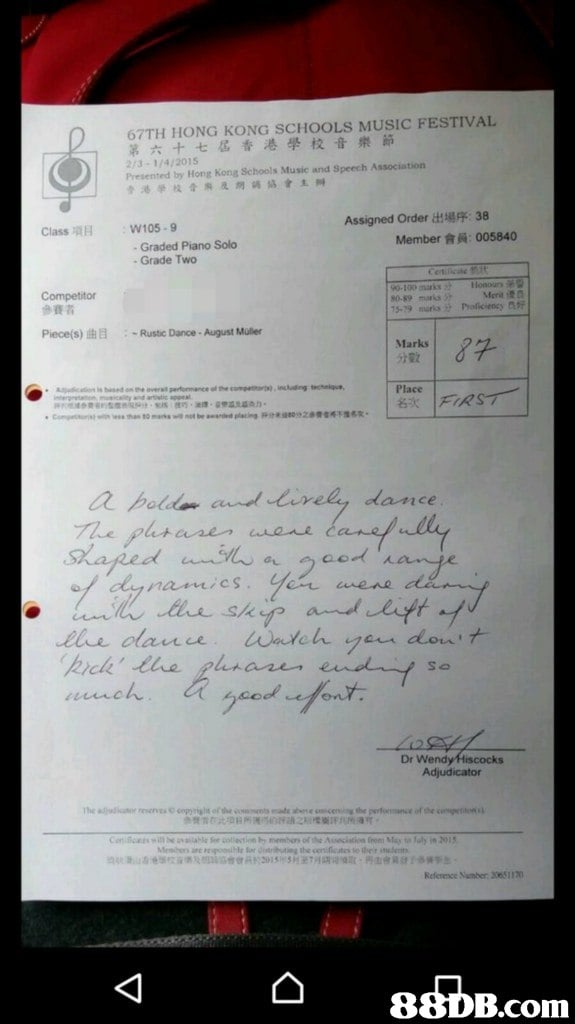 67TH HONG KONG SCHOOLS MUSIC FESTIVAL
第六十七屆香港學校音樂節
2/3 - 1/4/2015
Presented by Hong Kong Schools Music and Speech Association
香港學校音樂及朗誦協會主辦
Assigned Order 出場序: 38
Member 會員: 005840
Class 項目 : W105 - 9
- Graded Piano Solo
- Grade Two
Certificate 獎狀
90-100 marks 分 Honours 榮譽
80-89 marks 分 Merit 優良
75-79 marks 分 Proficiency 良好
Competitor
參賽者
Piece(s) 曲目 : ~ Rustic Dance - August Müller
Marks 87
分數
Place FIRST
名次
• Adjudication is based on the overall performance of the competitor(s), including: technique,
interpretation, musicality and artistic appeal.
• Competitor(s) with less than 80 marks will not be awarded placing
A bold and lively dance.
The phrases were carefully
shaped with a good range
of dynamics. You were daring
with the skip and lift of
the dance. Watch you don't
'kick' the phrases ending so
much. A good effort.
Dr Wendy Hiscocks
Adjudicator
The adjudicator reserves © copyright of the comments made above concerning the performance of the competitor(s).
Certificates will be available for collection by members of the Association from May to July in 2015.
Members are responsible for distributing the certificates to their students.
Reference Number: 20651170
88DB.com